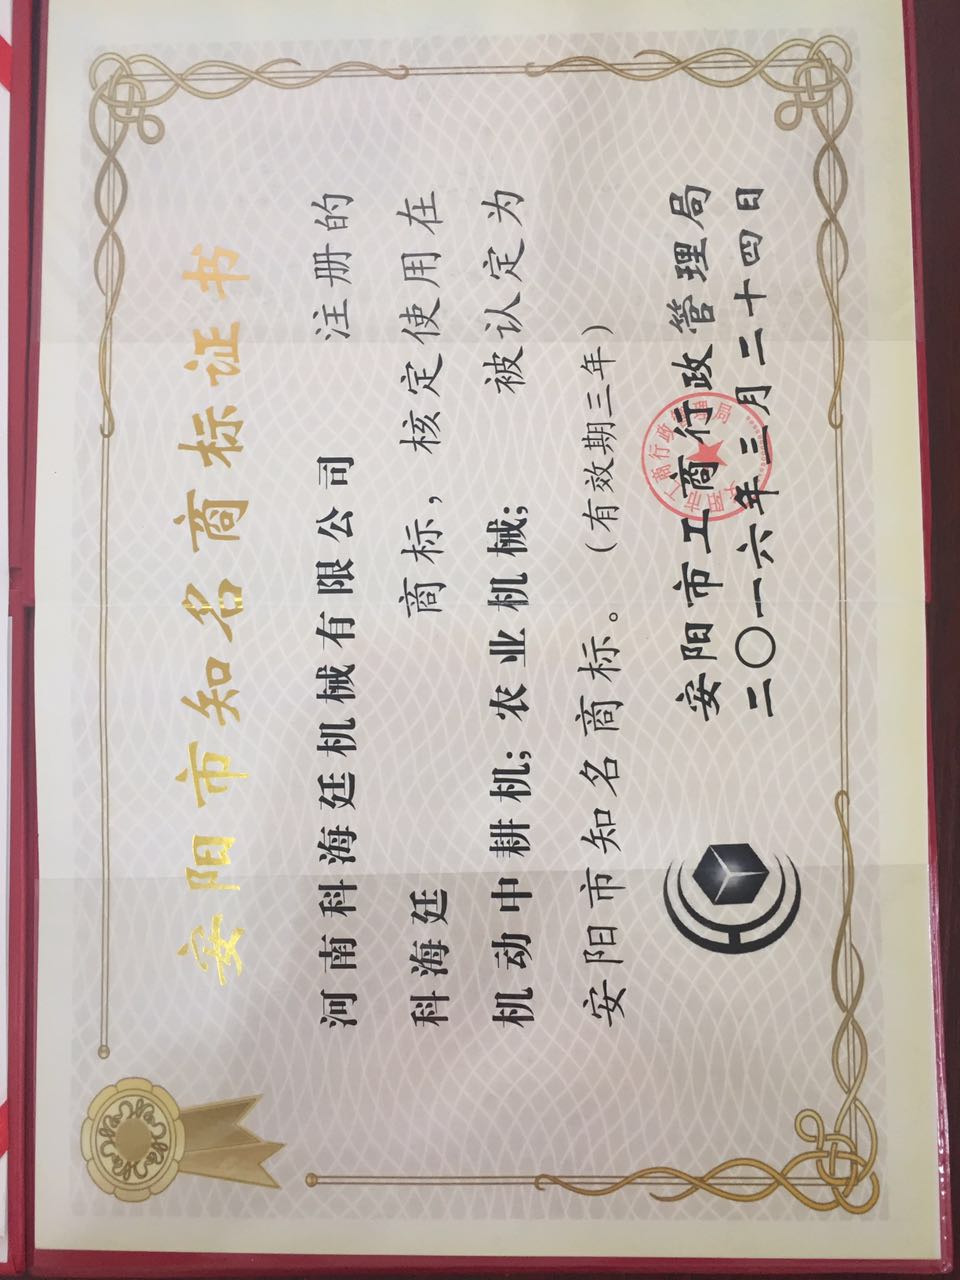 安阳市知名商标证书
河南科海廷机械有限公司 注册的
科海廷 商标，核定使用在
机动中耕机；农业机械； 被认定为
安阳市知名商标。（有效期三年）
安阳市工商行政管理局
二〇一六年三月二十四日